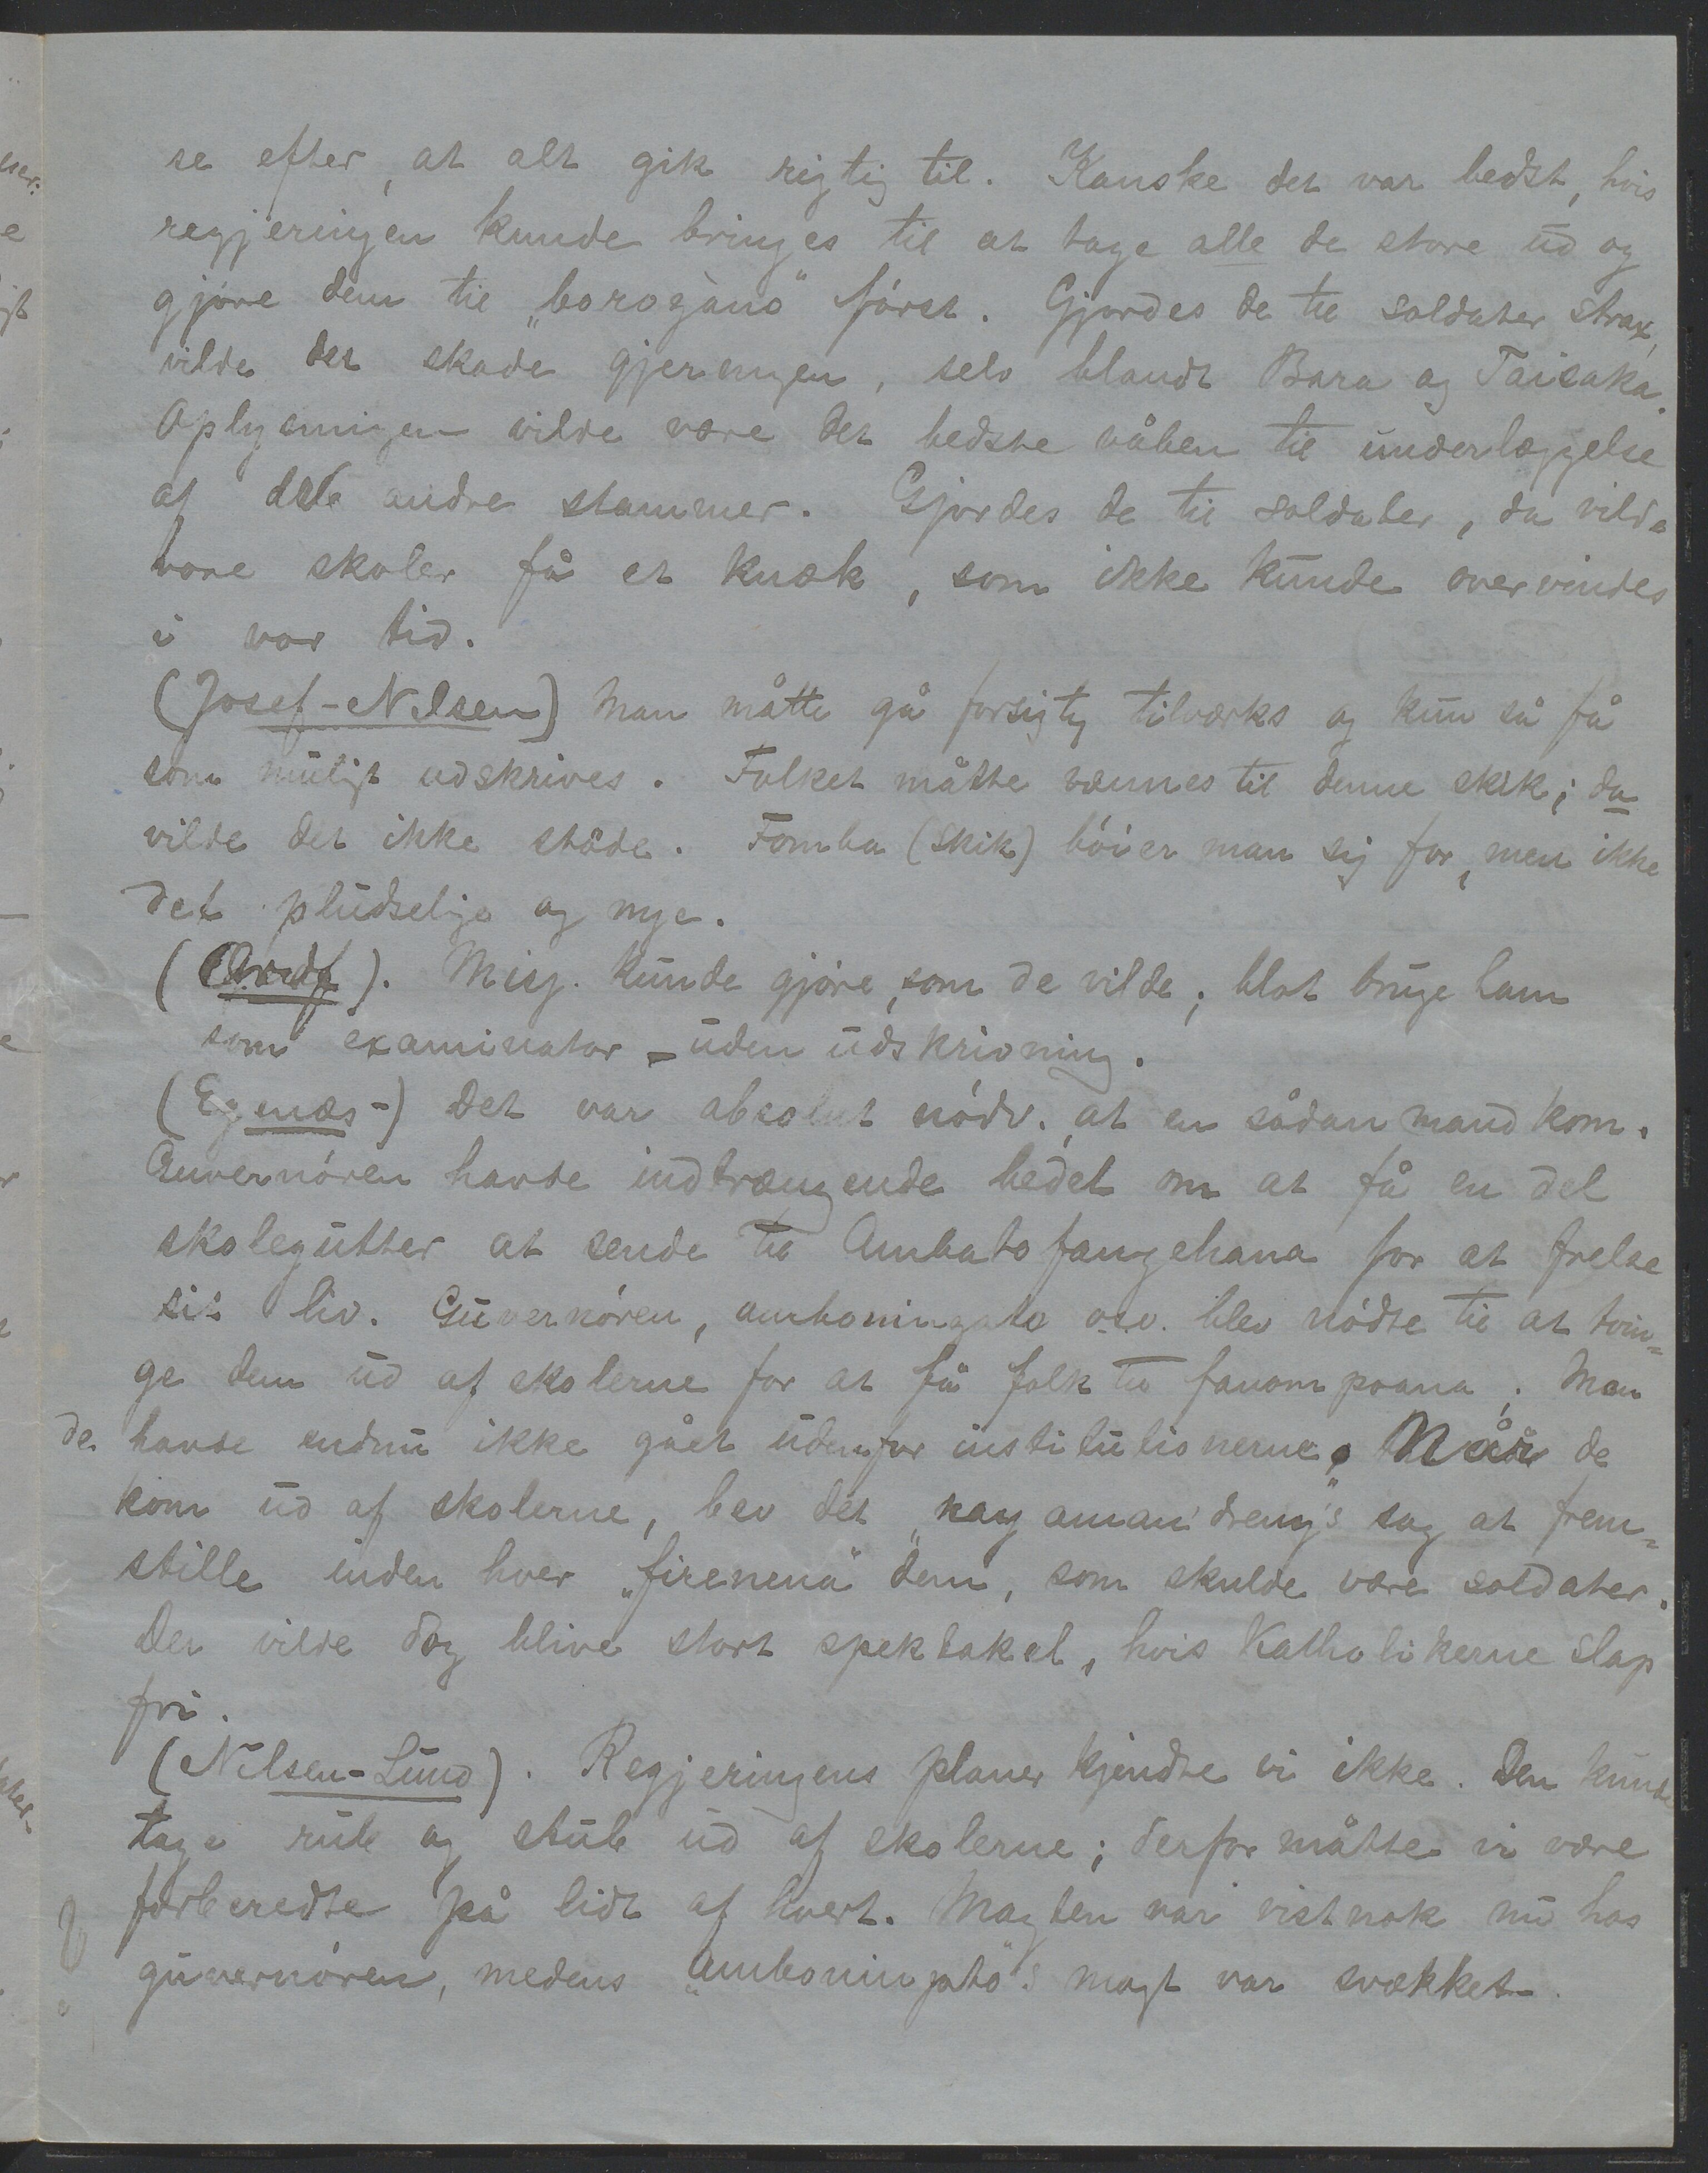 se efter, at alt gik rigtig til. Kanske det var bedst, hvis
regjeringen kunde bringes til at tage alle de store ud og
gjöre dem til „borozano“ først. Gjordes de til soldater strax,
vilde det skade gjerningen, selv blandt Bara og Taisaka.
Oplysningen vilde være det bedste våben til underlæggelse
af de andre stammer. Gjordes de til soldater, da vilde
vore skoler få et knæk, som ikke kunde overvindes
i vor tid.
(Josef-Nilsen) Man måtte gå forsigtig tilværks og kun så få
som muligt udskrives. Folket måtte vænnes til denne skik; da
vilde det ikke støde. Fomba (skik) böier man sig for, men ikke
det pludselige og nye.
( ). Misj. kunde gjöre, som de vilde; blot bruge ham
som examinator – uden udskrivning.
(Egenæs-) Det var absolut nödv., at en sådan mand kom.
Guvernören havde indtrængende bedet om at få en del
skolegutter at sende til Ambatofangehana for at frelse
sit liv. Guvernören, amboninzato osv. blev nödte til at tvin=
ge dem ud af skolerne for at få folk til fanompoana; Men
de havde endnu ikke gået udenfor institutionerne. Når de
kom ud af skolerne, blev det „ray aman'dreny“s sag at frem=
stille inden hver „firenena“ dem, som skulde være soldater.
Der vilde dog blive stort spektakel, hvis Katholikerne slap
fri.
(Nilsen-Lund). Regjeringens planer kjendte vi ikke. Den kunde
tage rub og stub ud af skolerne; derfor måtte vi være
forberedte på lidt af hvert. Magten var vistnok nu hos
guvernören, medens „amboninjato“s magt var svækket.